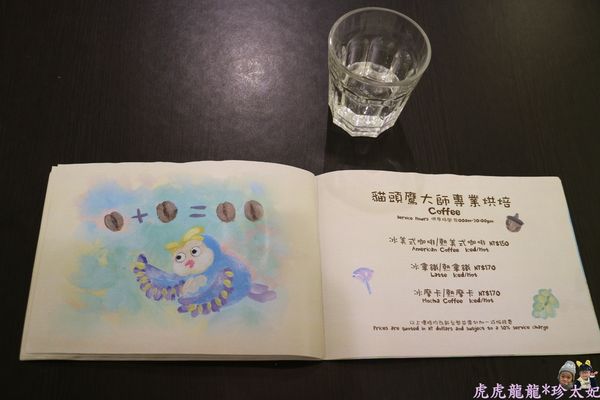 + =
貓頭鷹大師專業烘焙
Coffee
Service Hours 供應時間 11:00am-10:00pm
冰美式咖啡/熱美式咖啡 NT$150
American Coffee Iced/Hot
冰拿鐵/熱拿鐵 NT$170
Latte Iced/Hot
冰摩卡/熱摩卡 NT$170
Mocha Coffee Iced/Hot
Prices are quoted in NT dollars and subject to a 10% service charge
虎虎龍龍*珍太妃